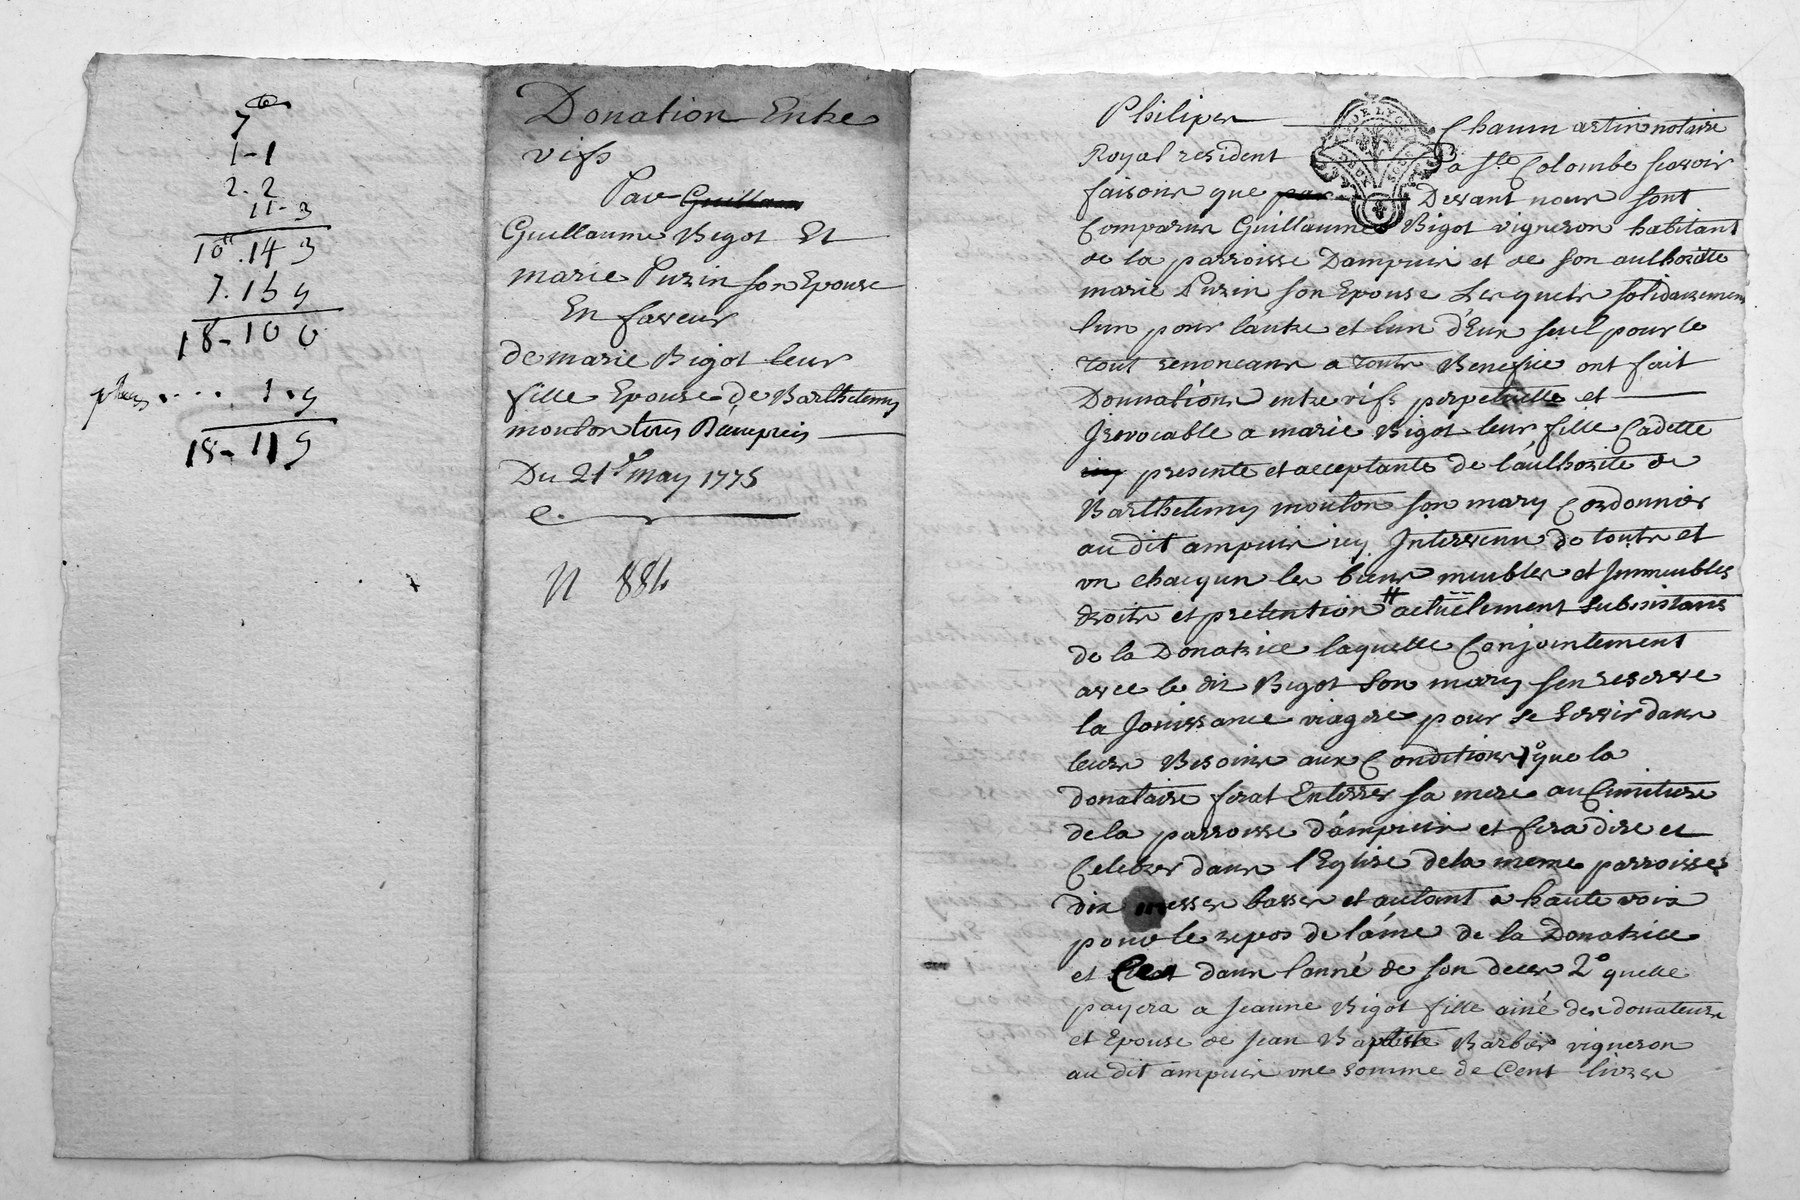 7
1-1
2.2
11-3
10.14 3
7.15 9
18-10 0
plus .... 1.9
18-11 9
Donation Entre
vifs
Par Guillaume
Guillaume Bigot Et
marie Puzin son Epouse
En faveur
de marie Bigot leur
fille Epouse de Barthelemy
mouton tous D'ampuis
Du 21e may 1775
N 884
Philipes Chaumartin notaire
Royal resident a Ste Colombe scavoir
faisons que par Devant nous sont
Comparus Guillaume Bigot vigneron habitant
de la parroisse Dampuis et de son authorité
marie Puzin son Epouse Lesquels solidairement
lun pour lautre et lun d'Eux seul pour le
tout renonceant a toutes Benefice ont fait
Donnations entre vifs perpetuelle et
Jrevocable a marie Bigot leur fille Cadette
icy presente et acceptante de l'authorité de
Barthelemy mouton son mary Cordonnier
au dit ampuis icy Intervenu de toutes et
un chacqun les biens meubles et Jmmeubles
droits et pretention # actuelement subsistans
de la Donatrice laquelle Conjointement
avec le dit Bigot son mary sen reserve
la Jouissance viagere pour se servir dans
leurs Besoins aux Conditions 1o que la
donataire ferat Enterrer sa mere au Cimitiere
de la parroisse d'ampuis et fera dire et
Celebrer dans l'Eglise de la meme parroisse
dix messes basses et autant a haute voix
pour le repos de l'ame de la Donatrice
et dans lanné de son deces 2o quelle
payera a Jeanne Bigot fille ainé des donateurs
et Epouse de Jean Baptiste Barbier vigneron
au dit ampuis une somme de Cent livres